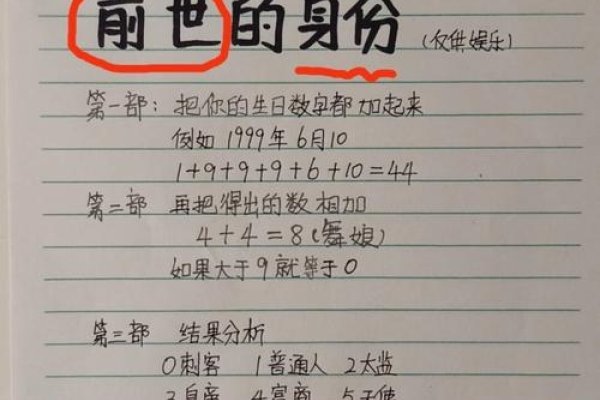 前世的身份（仅供娱乐）
第一部：把你的生日数字都加起来
例如1999年6月10
1+9+9+9+6+10=44
第二部 再把得出的数相加
4+4=8（舞娘）
如果大于9就等于0
第三部 结果分析
0刺客 1普通人 2太监
3皇帝 4富商 5天使